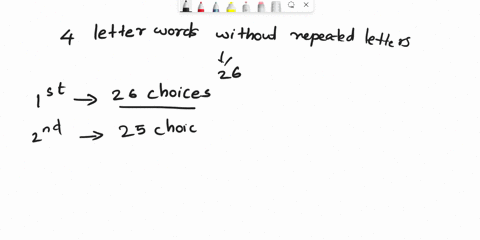 4 letter words without repeated letters
26
1st → 26 choices
2nd → 25 choic